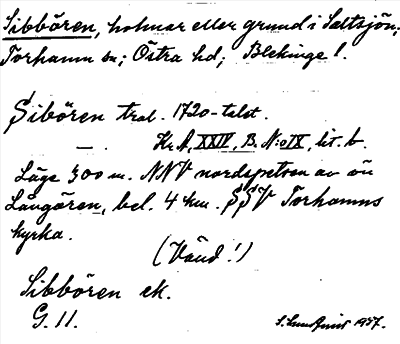 Sibbören, holmar eller grund i Saltsjön;
Torhamn sn; Östra hd; Blekinge l.
Sibören trol. 1720-talet.
— Kr A, XXIV, B. N:o IX, lit. b.
Läge 300 m. NNV nordspetsen av ön
Långören, bel. 4 km. SSV Torhamns
kyrka.
(Vänd!)
Sibbören ek.
G. 11.
S. Lundquist 1937.